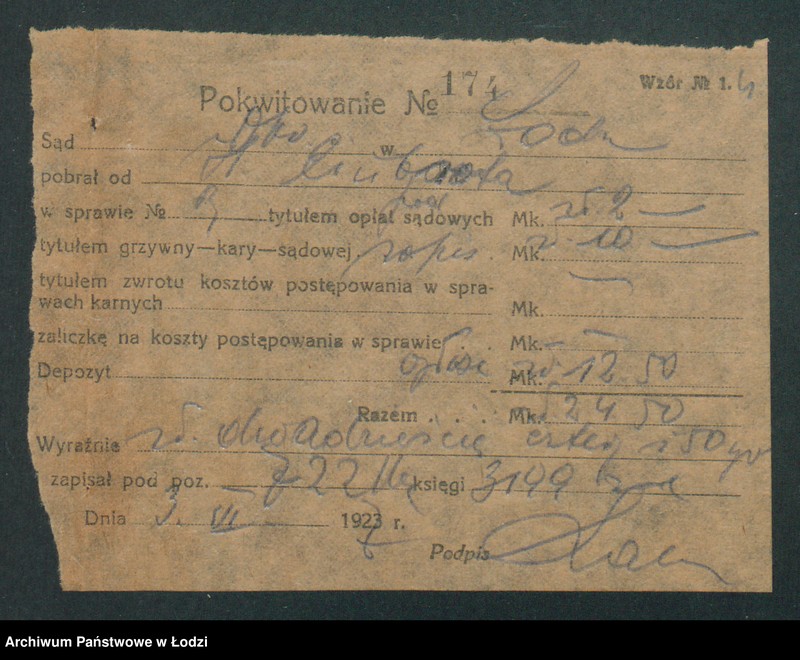 Wzór № 1. 4
Pokwitowanie № 174
Sąd Okr w Łodzi
pobrał od
w sprawie № tytułem opłat sądowych Mk. zł. 2 —
tytułem grzywny—kary—sądowej wpis . Mk. zł 10 —
tytułem zwrotu kosztów postępowania w spra-
wach karnych Mk. —
zaliczkę na koszty postępowania w sprawie . . Mk. —
Depozyt ogłosz Mk. zł 12 50
Razem . . . . Mk. zł 24 50
Wyraźnie zł. dwadzieścia cztery i 50 gr
zapisał pod poz. księgi 3199
Dnia 3. III 1927 r.
Podpis
Archiwum Państwowe w Łodzi